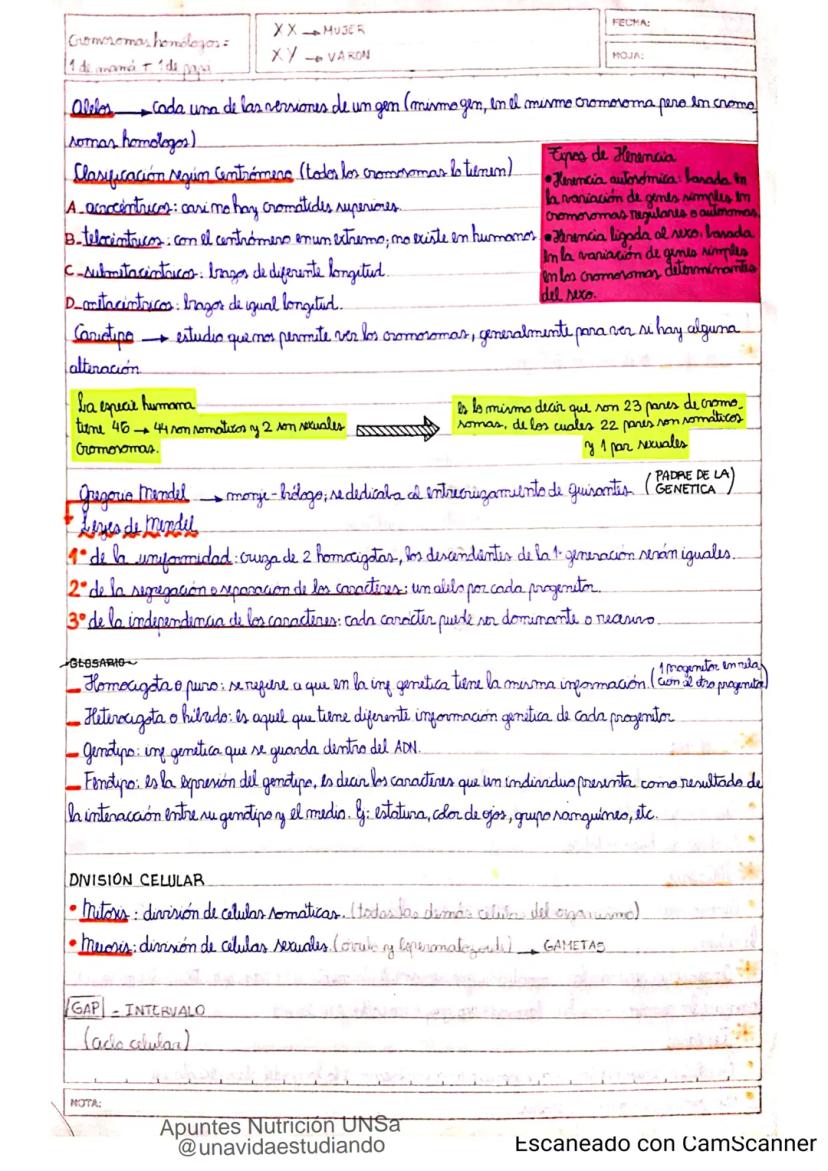 Cromosomas homólogos =
1 de mamá + 1 de papá
XX → MUJER
XY → VARON
FECHA:
HOJA:
Alelos → cada una de las versiones de un gen (mismo gen, en el mismo cromosoma pero en cromo_
somas homologos)
Clasificación según Centrómero (todos los cromosomas lo tienen)
A_ acrocéntricos: casi no hay cromátides superiores.
B_ telocéntricos: con el centrómero en un extremo; no existe en humanos.
C_ submetacéntricos: brazos de diferente longitud.
D_ metacéntricos: brazos de igual longitud.
Tipos de Herencia
• Herencia autosómica: basada en
la variación de genes simples en
cromosomas regulares o autosomas.
• Herencia ligada al sexo: basada
en la variación de genes simples
en los cromosomas determinantes
del sexo.
Cariotipo → estudio que nos permite ver los cromosomas, generalmente para ver si hay alguna
alteración
La especie humana
tiene 46 → 44 son somáticos y 2 son sexuales
cromosomas.
Es lo mismo decir que son 23 pares de cromo_
somas, de los cuales 22 pares son somáticos
y 1 par sexuales
Gregorio Mendel → monje-biólogo; se dedicaba al entrecruzamiento de guisantes. (PADRE DE LA
GENETICA)
Leyes de Mendel
1° de la uniformidad: cruza de 2 homocigotas, los descendientes de la 1° generación serán iguales.
2° de la segregación o separación de los caracteres: un alelo por cada progenitor.
3° de la independencia de los caracteres: cada carácter puede ser dominante o recesivo.
GLOSARIO
_ Homocigota o puro: se refiere a que en la inf genetica tiene la misma información. (1 progenitor en rela_
ción al otro progenitor)
_ Heterocigota o híbrido: es aquel que tiene diferente información genética de cada progenitor
_ Genotipo: inf genética que se guarda dentro del ADN.
_ Fenotipo: es la expresión del genotipo, es decir los caracteres que un individuo presenta como resultado de
la interacción entre su genotipo y el medio. Ej: estatura, color de ojos, grupo sanguíneo, etc.
DIVISIÓN CELULAR
• Mitosis: división de células somáticas. (todas las demás célula del organismo)
• Meiosis: división de células sexuales. (óvulo y espermatozoide) → GAMETAS
GAP - INTERVALO
(ciclo celular)
NOTA:
Apuntes Nutrición UNSa
@unavidaestudiando
Escaneado con CamScanner